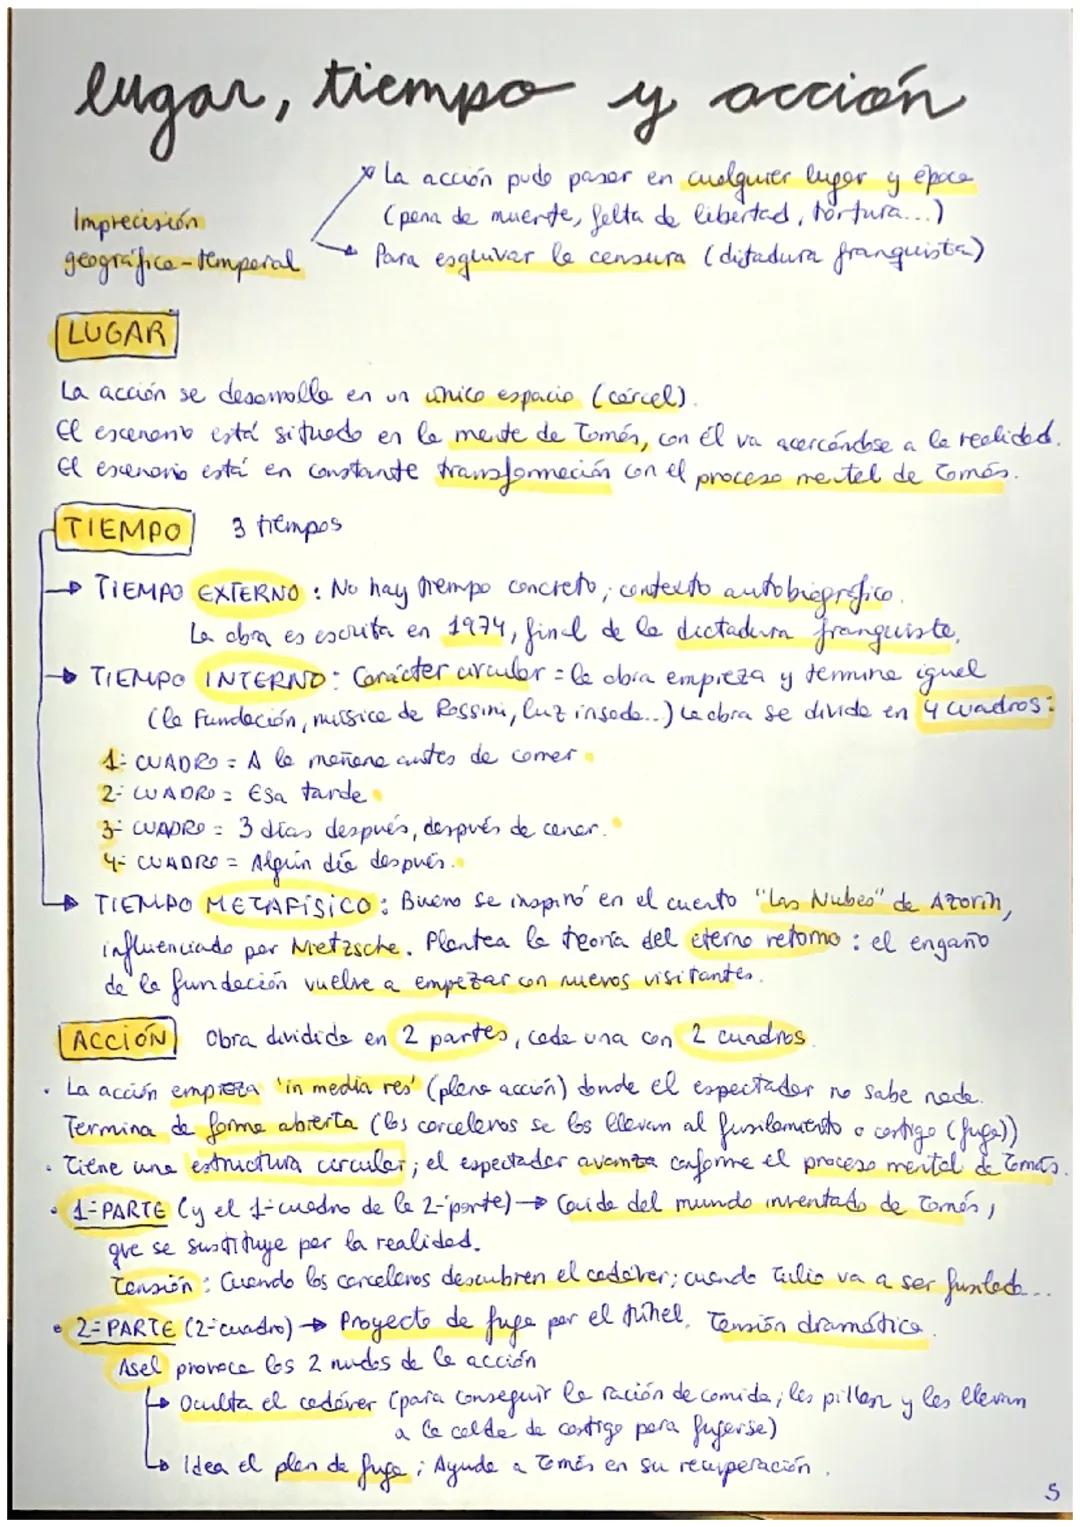 lugar, tiempo y acción
La acción pudo pasar en cualquier lugar y época
(pena de muerte, falta de libertad, tortura...)
Imprecisión
geográfica-temporal
Para esquivar la censura (ditadura franquista)
LUGAR
La acción se desarrolla en un único espacio (cárcel).
El escenario está situado en la mente de Tomás, con él va acercándose a la realidad.
El escenario está en constante transformación con el proceso mental de Tomás.
TIEMPO 3 tiempos
TIEMPO EXTERNO: No hay tiempo concreto; contexto autobiográfico.
La obra es escrita en 1974, final de la dictadura franquista.
TIEMPO INTERNO: Carácter circular = la obra empieza y termina igual
(la Fundación, música de Rossini, luz irisada...) La obra se divide en 4 cuadros:
1º CUADRO = A la mañana antes de comer
2º CUADRO = Esa tarde
3º CUADRO = 3 días después, después de cenar.
4º CUADRO = Algún día después.
TIEMPO METAFÍSICO: Buero se inspiró en el cuento "Las Nubes" de Azorín,
influenciado por Nietzsche. Plantea la teoría del eterno retorno: el engaño
de la fundación vuelve a empezar con nuevos visitantes.
ACCIÓN Obra dividida en 2 partes, cada una con 2 cuadros.
· La acción empieza 'in media res' (plena acción) donde el espectador no sabe nada.
Termina de forma abierta (los carceleros se los llevan al fusilamiento o castigo (fuga))
· Tiene una estructura circular; el espectador avanza conforme el proceso mental de Tomás.
· 1ª PARTE (y el 1º cuadro de la 2ª parte) → Caída del mundo inventado de Tomás,
que se sustituye por la realidad.
Tensión: Cuando los carceleros descubren el cadáver; cuando Tulio va a ser fusilado...
· 2ª PARTE (2º cuadro) → Proyecto de fuga por el túnel. Tensión dramática.
Asel provoca los 2 nudos de la acción
Oculta el cadáver (para conseguir la ración de comida; les pillan y les llevan
a la celda de castigo para fugarse)
Idea el plan de fuga; Ayuda a Tomás en su recuperación.
5